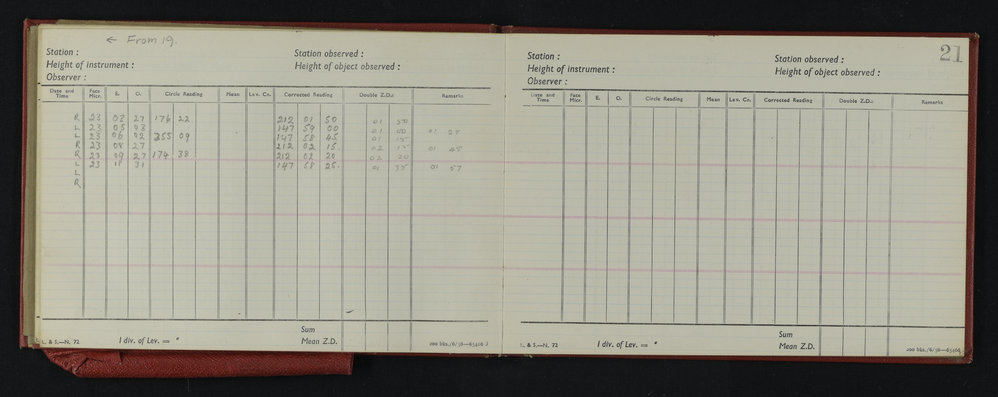 ← From 19.
Station :
Station observed :
Height of instrument :
Height of object observed :
Observer :
Date and Time Face Micr. E. O. Circle Reading Mean Lev. Cn. Corrected Reading Double Z.D.s Remarks
R 23 03 27 176 22 212 01 50 01 50
L 23 05 03 147 59 00 01 00 01 25
L 23 06 02 355 09 147 58 45 01 15
R 23 08 27 212 02 15. 02 15 01 45
R 23 09 27 174 38. 212 02 20 02 20
L 23 11 31 147 58 25. 01 35 01 57
L
R
Sum
L. & S.—N. 72 1 div. of Lev. = " Mean Z.D.
21
Station :
Station observed :
Height of instrument :
Height of object observed :
Observer :
Date and Time Face Micr. E. O. Circle Reading Mean Lev. Cn. Corrected Reading Double Z.D.s Remarks
Sum
L. & S.—N. 72 1 div. of Lev. = " Mean Z.D.